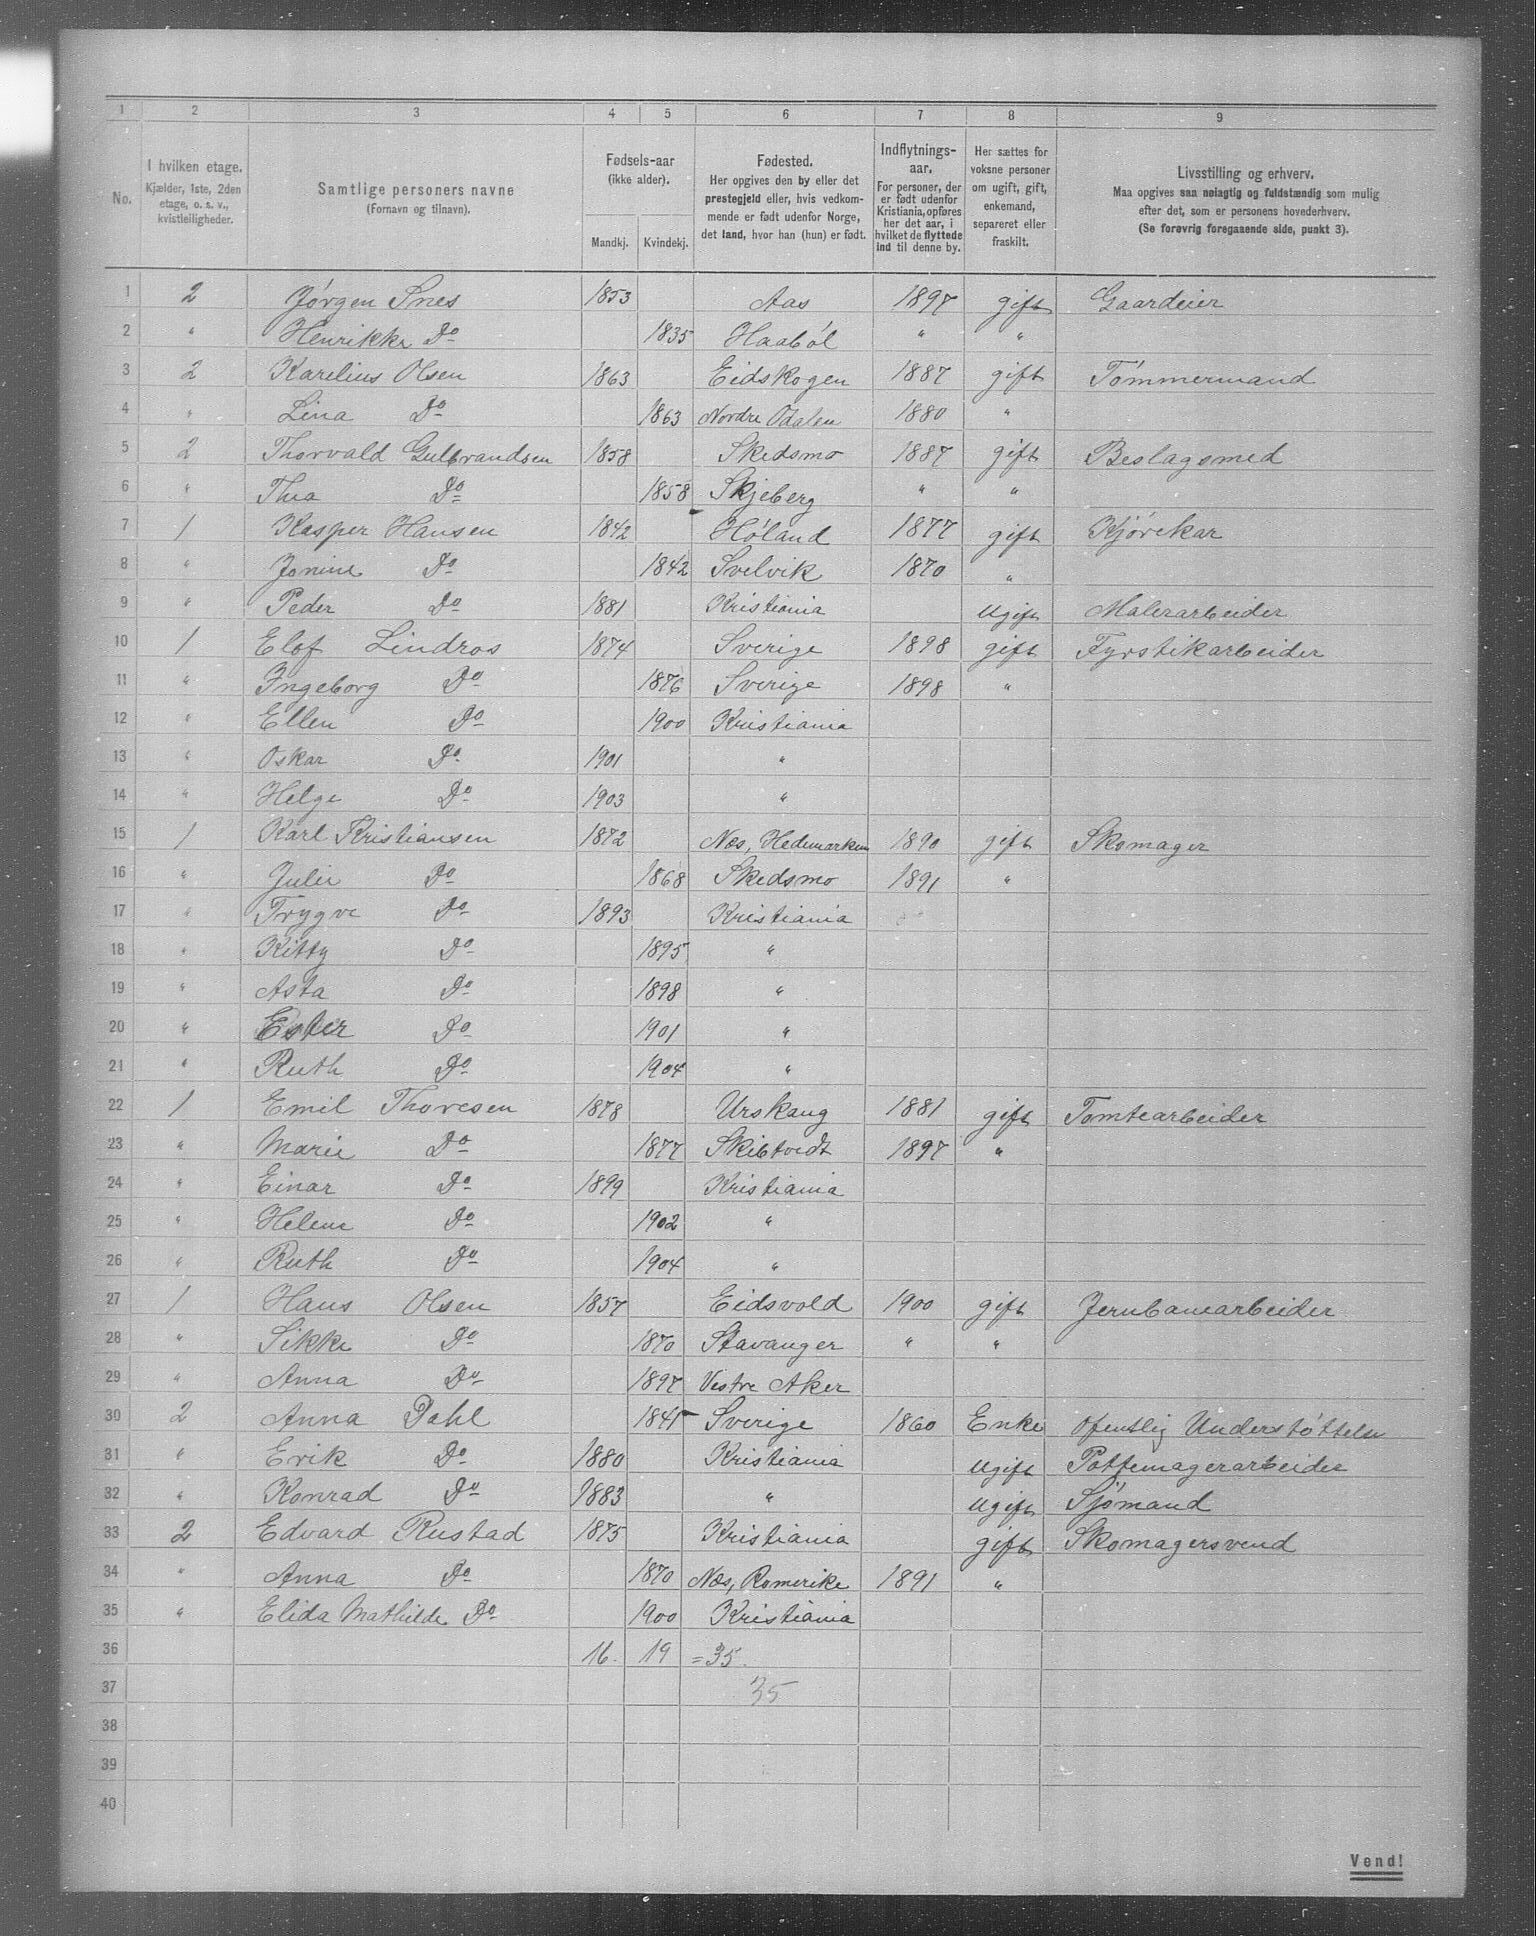 1 2 3 4 5 6 7 8 9
No. I hvilken etage. Kjælder, 1ste, 2den etage, o. s. v., kvistleiligheder.
Samtlige personers navne (Fornavn og tilnavn).
Fødsels-aar (ikke alder). Mandkj. Kvindekj.
Fødested. Her opgives den by eller det prestegjeld eller, hvis vedkommende er født udenfor Norge, det land, hvor han (hun) er født.
Indflytnings-aar. For personer, der er født udenfor Kristiania, opføres her det aar, i hvilket de flyttede ind til denne by.
Her sættes for voksne personer om ugift, gift, enkemand, separeret eller fraskilt.
Livsstilling og erhverv. Maa opgives saa nøiagtig og fuldstændig som mulig efter det, som er personens hovederhverv. (Se forøvrig foregaaende side, punkt 3).
1 2 Jörgen Snes 1853 Aas 1897 gift Gaardeier
2 " Henrikke Do 1835 Haaböl " "
3 2 Karelius Olsen 1863 Eidskogen 1887 gift Tömmermand
4 " Lina Do 1863 Nordre Odalen 1880 "
5 2 Thorvald Gulbrandsen 1858 Skedsmo 1887 gift Beslagsmed
6 " Thea Do 1858 Skjeberg " "
7 1 Kasper Hansen 1842 Höland 1877 gift Kjörekar
8 " Jonine Do 1842 Svelvik 1870 "
9 " Peder Do 1881 Kristiania Ugift Malerarbeider
10 1 Elof Lindros 1874 Sverige 1898 gift Fyrstikarbeider
11 " Ingeborg Do 1876 Sverige 1898 "
12 " Ellen Do 1900 Kristiania
13 " Oskar Do 1901 "
14 " Helge Do 1903 "
15 1 Karl Kristiansen 1872 Næs, Hedemarken 1890 gift Skomager
16 " Julie Do 1868 Skedsmo 1891 "
17 " Trygve Do 1893 Kristiania
18 " Kitty Do 1895 "
19 " Asta Do 1898 "
20 " Ester Do 1901 "
21 " Ruth Do 1904 "
22 1 Emil Thoresen 1878 Urskaug 1881 gift Tomtearbeider
23 " Marie Do 1877 Skibtvedt 1897 "
24 " Einar Do 1899 Kristiania
25 " Helene Do 1902 "
26 " Ruth Do 1904 "
27 1 Hans Olsen 1857 Eidsvold 1900 gift Jernbanearbeider
28 " Sikke Do 1870 Stavanger " "
29 " Anna Do 1897 Vestre Aker
30 2 Anna Dahl 1841 Sverige 1860 Enke Ofentlig Understöttelse
31 " Erik Do 1880 Kristiania Ugift Pottemagerarbeider
32 " Konrad Do 1883 " Ugift Sjömand
33 2 Edvard Rustad 1875 Kristiania gift Skomagersvend
34 " Anna Do 1870 Næs, Romerike 1891 "
35 " Elida Mathilde Do 1900 Kristiania
36 16. 19 =35.
37 35
38
39
40
Vend!